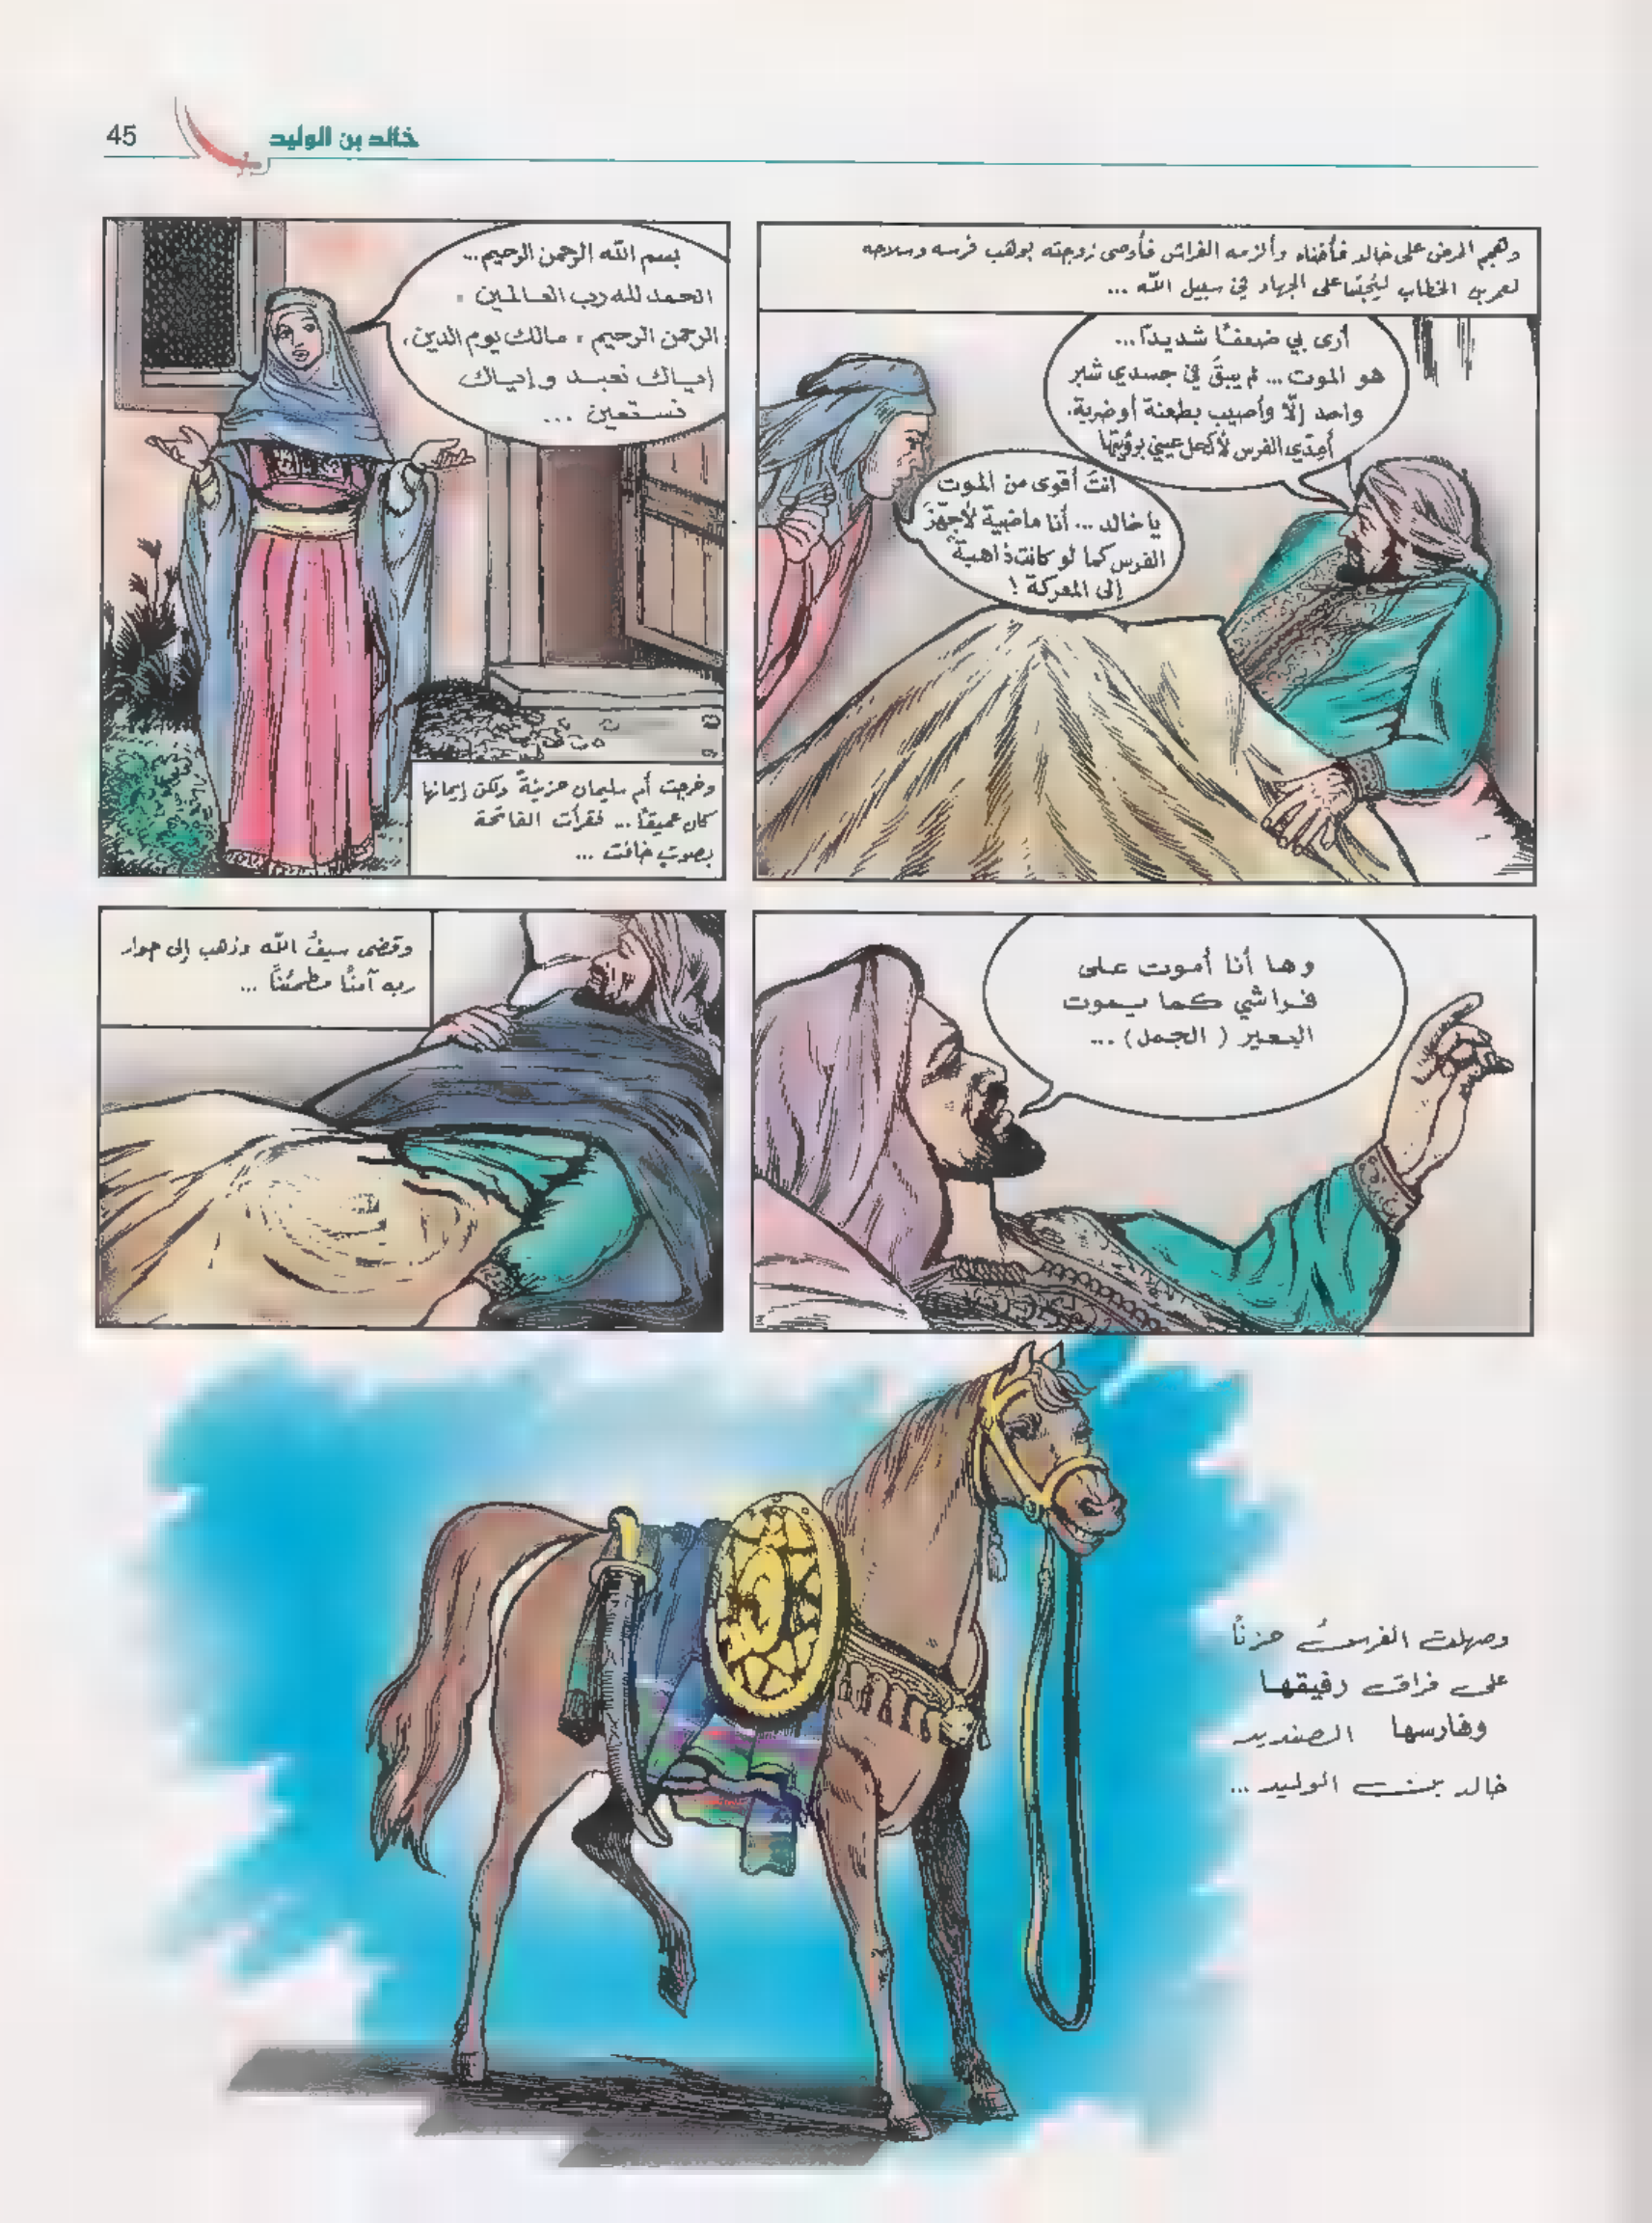 خالد بن الوليد
45
وهجم المرض على خالد فأضناه وألزمه الفراش فأوصى زوجته بوهب فرسه وسلاحه
لعمر بن الخطاب ليُجتبا على الجهاد في سبيل الله ...
أرى بي ضعفًا شديدًا...
هو الموت... لم يبقَ في جسدي شبر
واحد إلّا وأصيب بطعنة أو ضربة.
أعِدّي الفرس لأكحل عيني برؤيتها
انتَ أقوى من الموت
يا خالد... أنا ماضية لأجهّزَ
الفرس كما لو كانت ذاهبة
إلى المعركة !
بسم الله الرحمن الرحيم...
الحمد لله رب العالمين .
الرحمن الرحيم . مالك يوم الدين .
إياك نعبد وإياك
نستعين ...
وخرجت أم سليمان حزينةً ولكن إيمانها
كان عميقًا... فقرأت الفاتحة
بصوت خافت ...
وها أنا أموت على
فراشي كما يموت
البعير ( الجمل ) ...
وقضى سيفُ الله وذهب إلى جوار
ربه آمنًا مطمئنًا ...
وصهلت الفرسُ حزنًا
على فراق رفيقها
وفارسها الصنديد
خالد بن الوليد ...